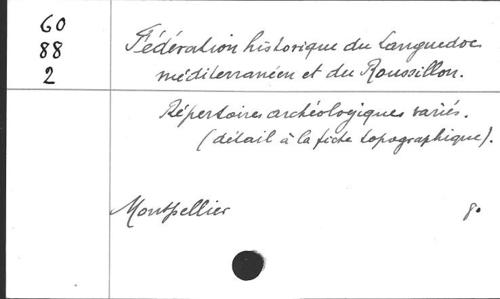 60
88
2
Fédération historique du Languedoc
méditerranéen et du Roussillon.
Répertoires archéologiques variés.
(détail à la fiche topographique).
Montpellier 8°